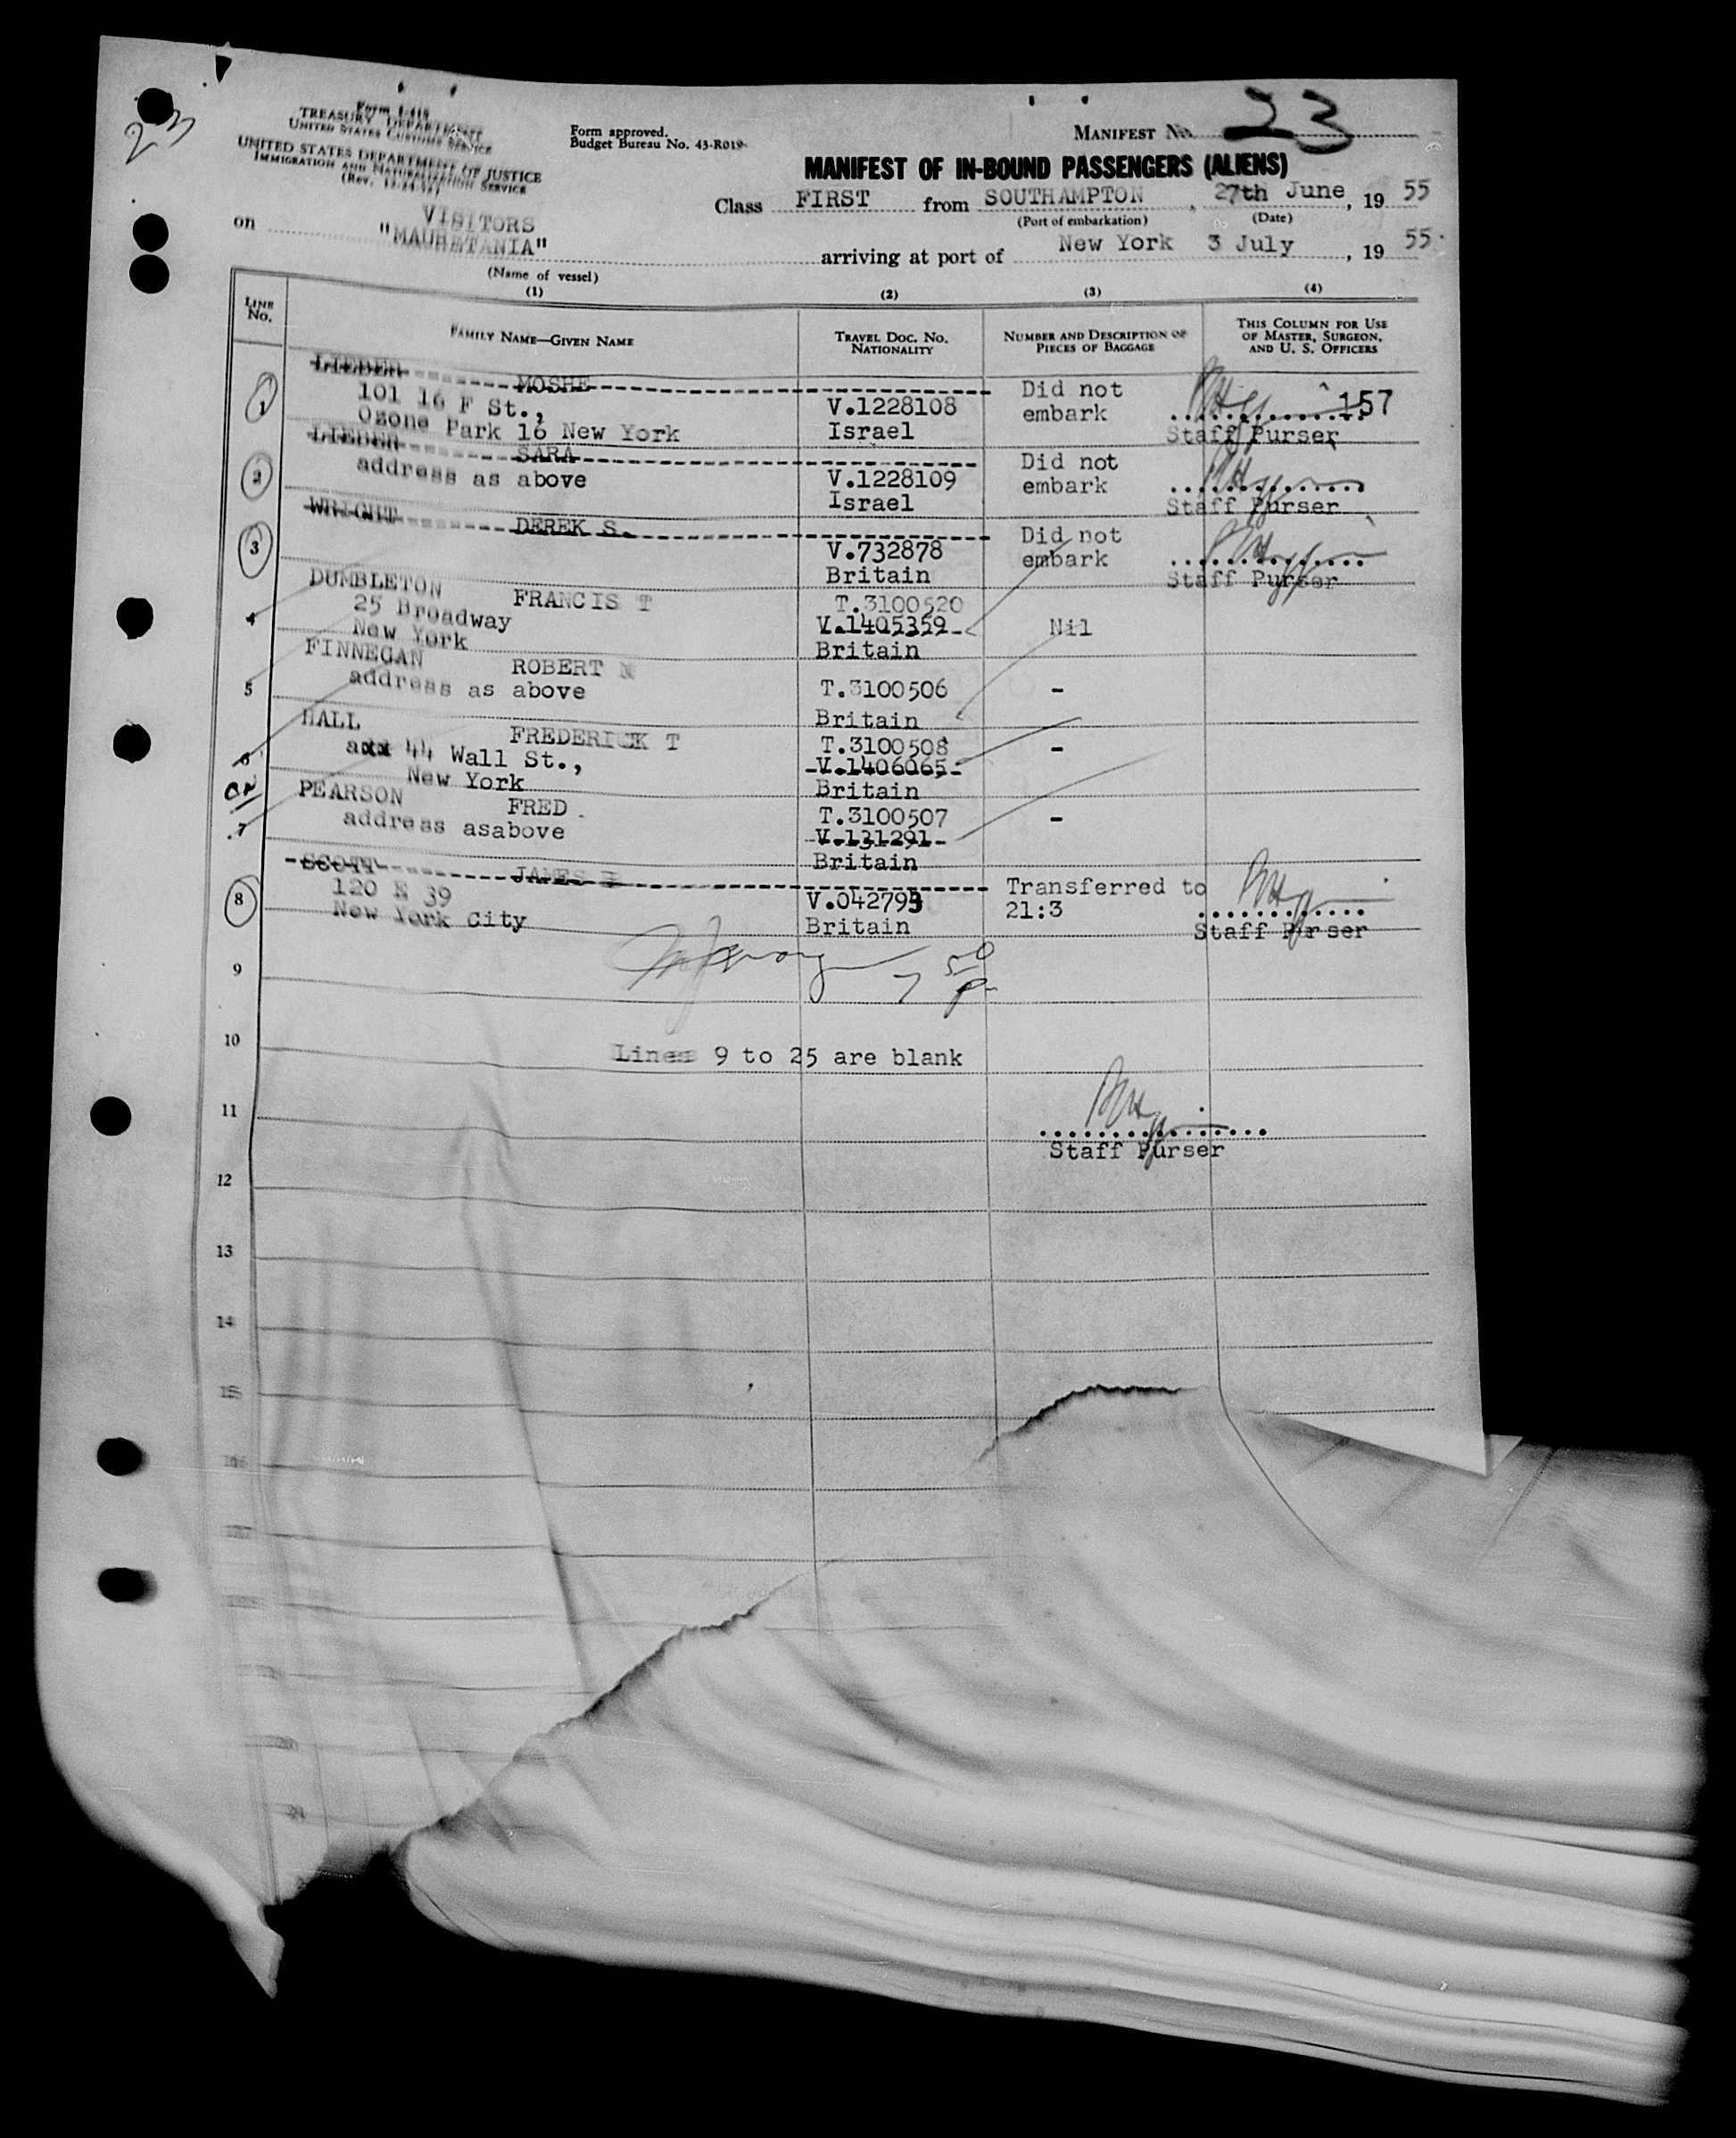 23
Form I-418
TREASURY DEPARTMENT
UNITED STATES CUSTOMS SERVICE
UNITED STATES DEPARTMENT OF JUSTICE
IMMIGRATION AND NATURALIZATION SERVICE
Form approved.
Budget Bureau No. 43-R019
MANIFEST No. 23
MANIFEST OF IN-BOUND PASSENGERS (ALIENS)
Class FIRST from SOUTHAMPTON, 27th June, 19 55
(Port of embarkation) (Date)
VISITORS
on "MAURETANIA" arriving at port of New York 3 July, 19 55.
(Name of vessel)
(1) (2) (3) (4)
LINE No. FAMILY NAME—GIVEN NAME TRAVEL DOC. NO. NATIONALITY NUMBER AND DESCRIPTION OF PIECES OF BAGGAGE THIS COLUMN FOR USE OF MASTER, SURGEON, AND U. S. OFFICERS
1 LIEBER MOSHE Did not
101 16 F St., V.1228108 embark 157
Ozone Park 16 New York Israel Staff Purser
2 LIEBER SARA Did not
address as above V.1228109 embark
Israel Staff Purser
3 WRIGHT DEREK S. Did not
V.732878 embark
Britain Staff Purser
4 DUMBLETON FRANCIS T T.3100520
25 Broadway V.1405359 Nil
New York Britain
5 FINNEGAN ROBERT N
address as above T.3100506 -
Britain
6 HALL FREDERICK T T.3100508 -
axx 44 Wall St., V.1406065
New York Britain
7 PEARSON FRED T.3100507 -
address asabove V.131291
Britain
8 SCOTT JAMES Transferred to
120 E 39 V.042793 21:3
New York City Britain Staff Purser
9
7 50
10
Lines 9 to 25 are blank
11
Staff Purser
12
13
14
15
16
17